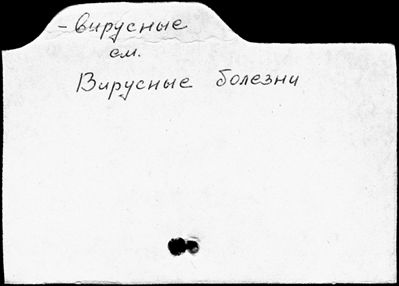 -вирусные
см.
Вирусные болезни